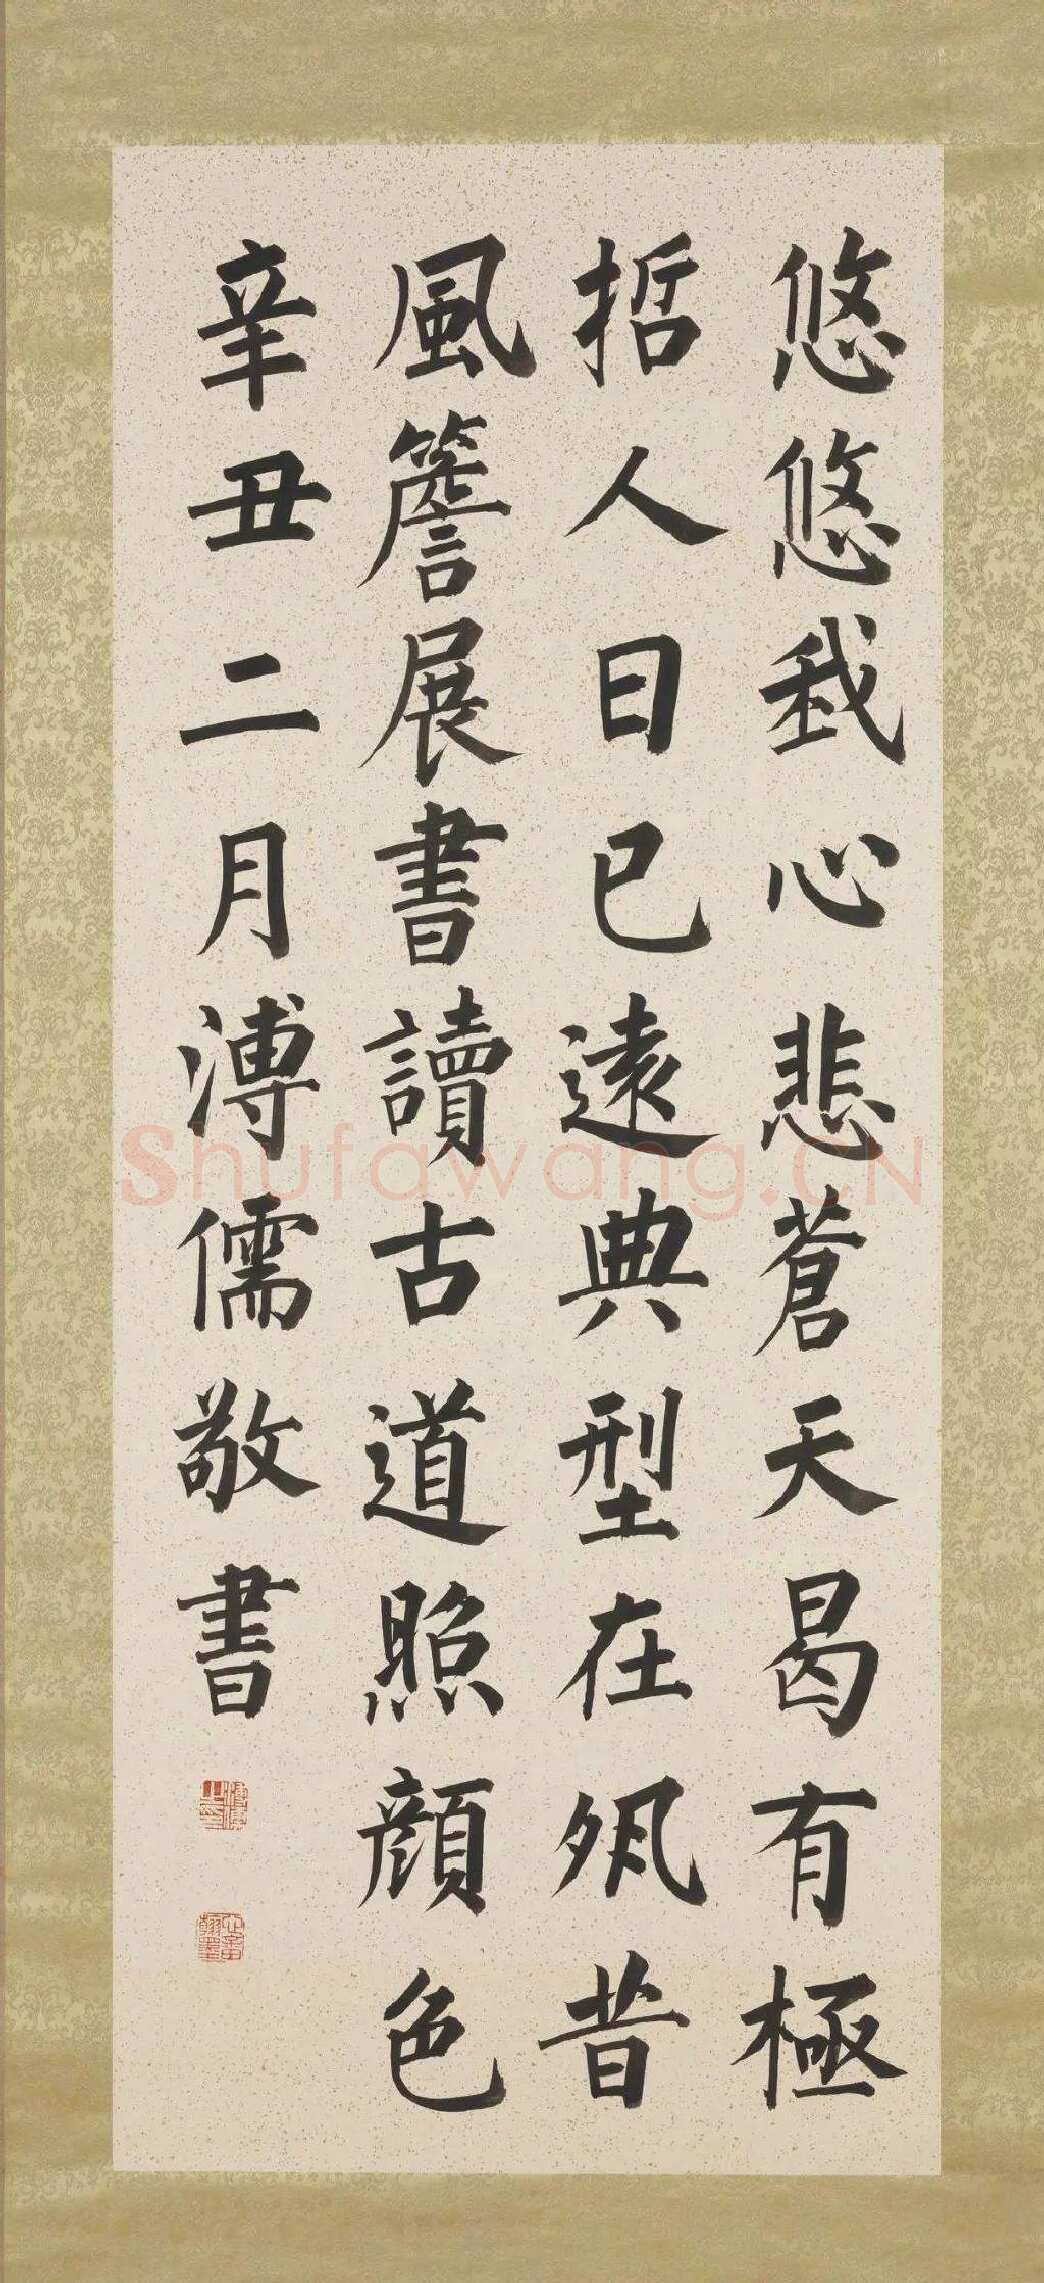 悠悠我心悲蒼天曷有極
哲人日已遠典型在夙昔
風簷展書讀古道照顏色
辛丑二月溥儒敬書
溥儒之印
心畬翰墨
Shufawang.CN